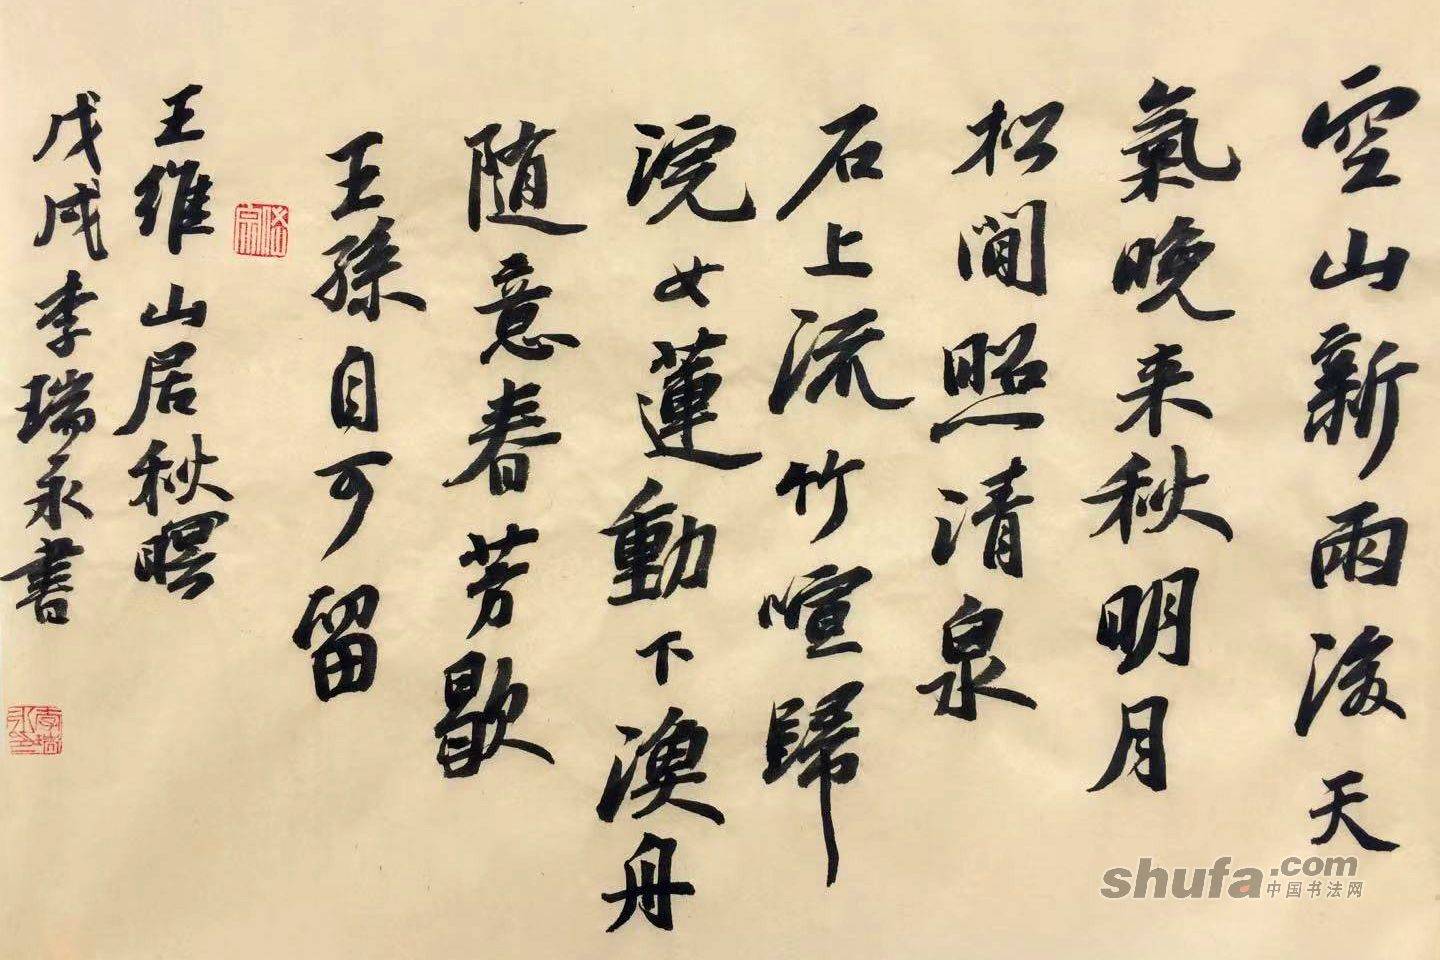 空山新雨後天
氣晚来秋明月
松間照清泉
石上流竹喧歸
浣女蓮動下漁舟
随意春芳歇
王孫自可留
王維山居秋暝
戊戌李瑞永書
李瑞永印
shufa.com
中国书法网